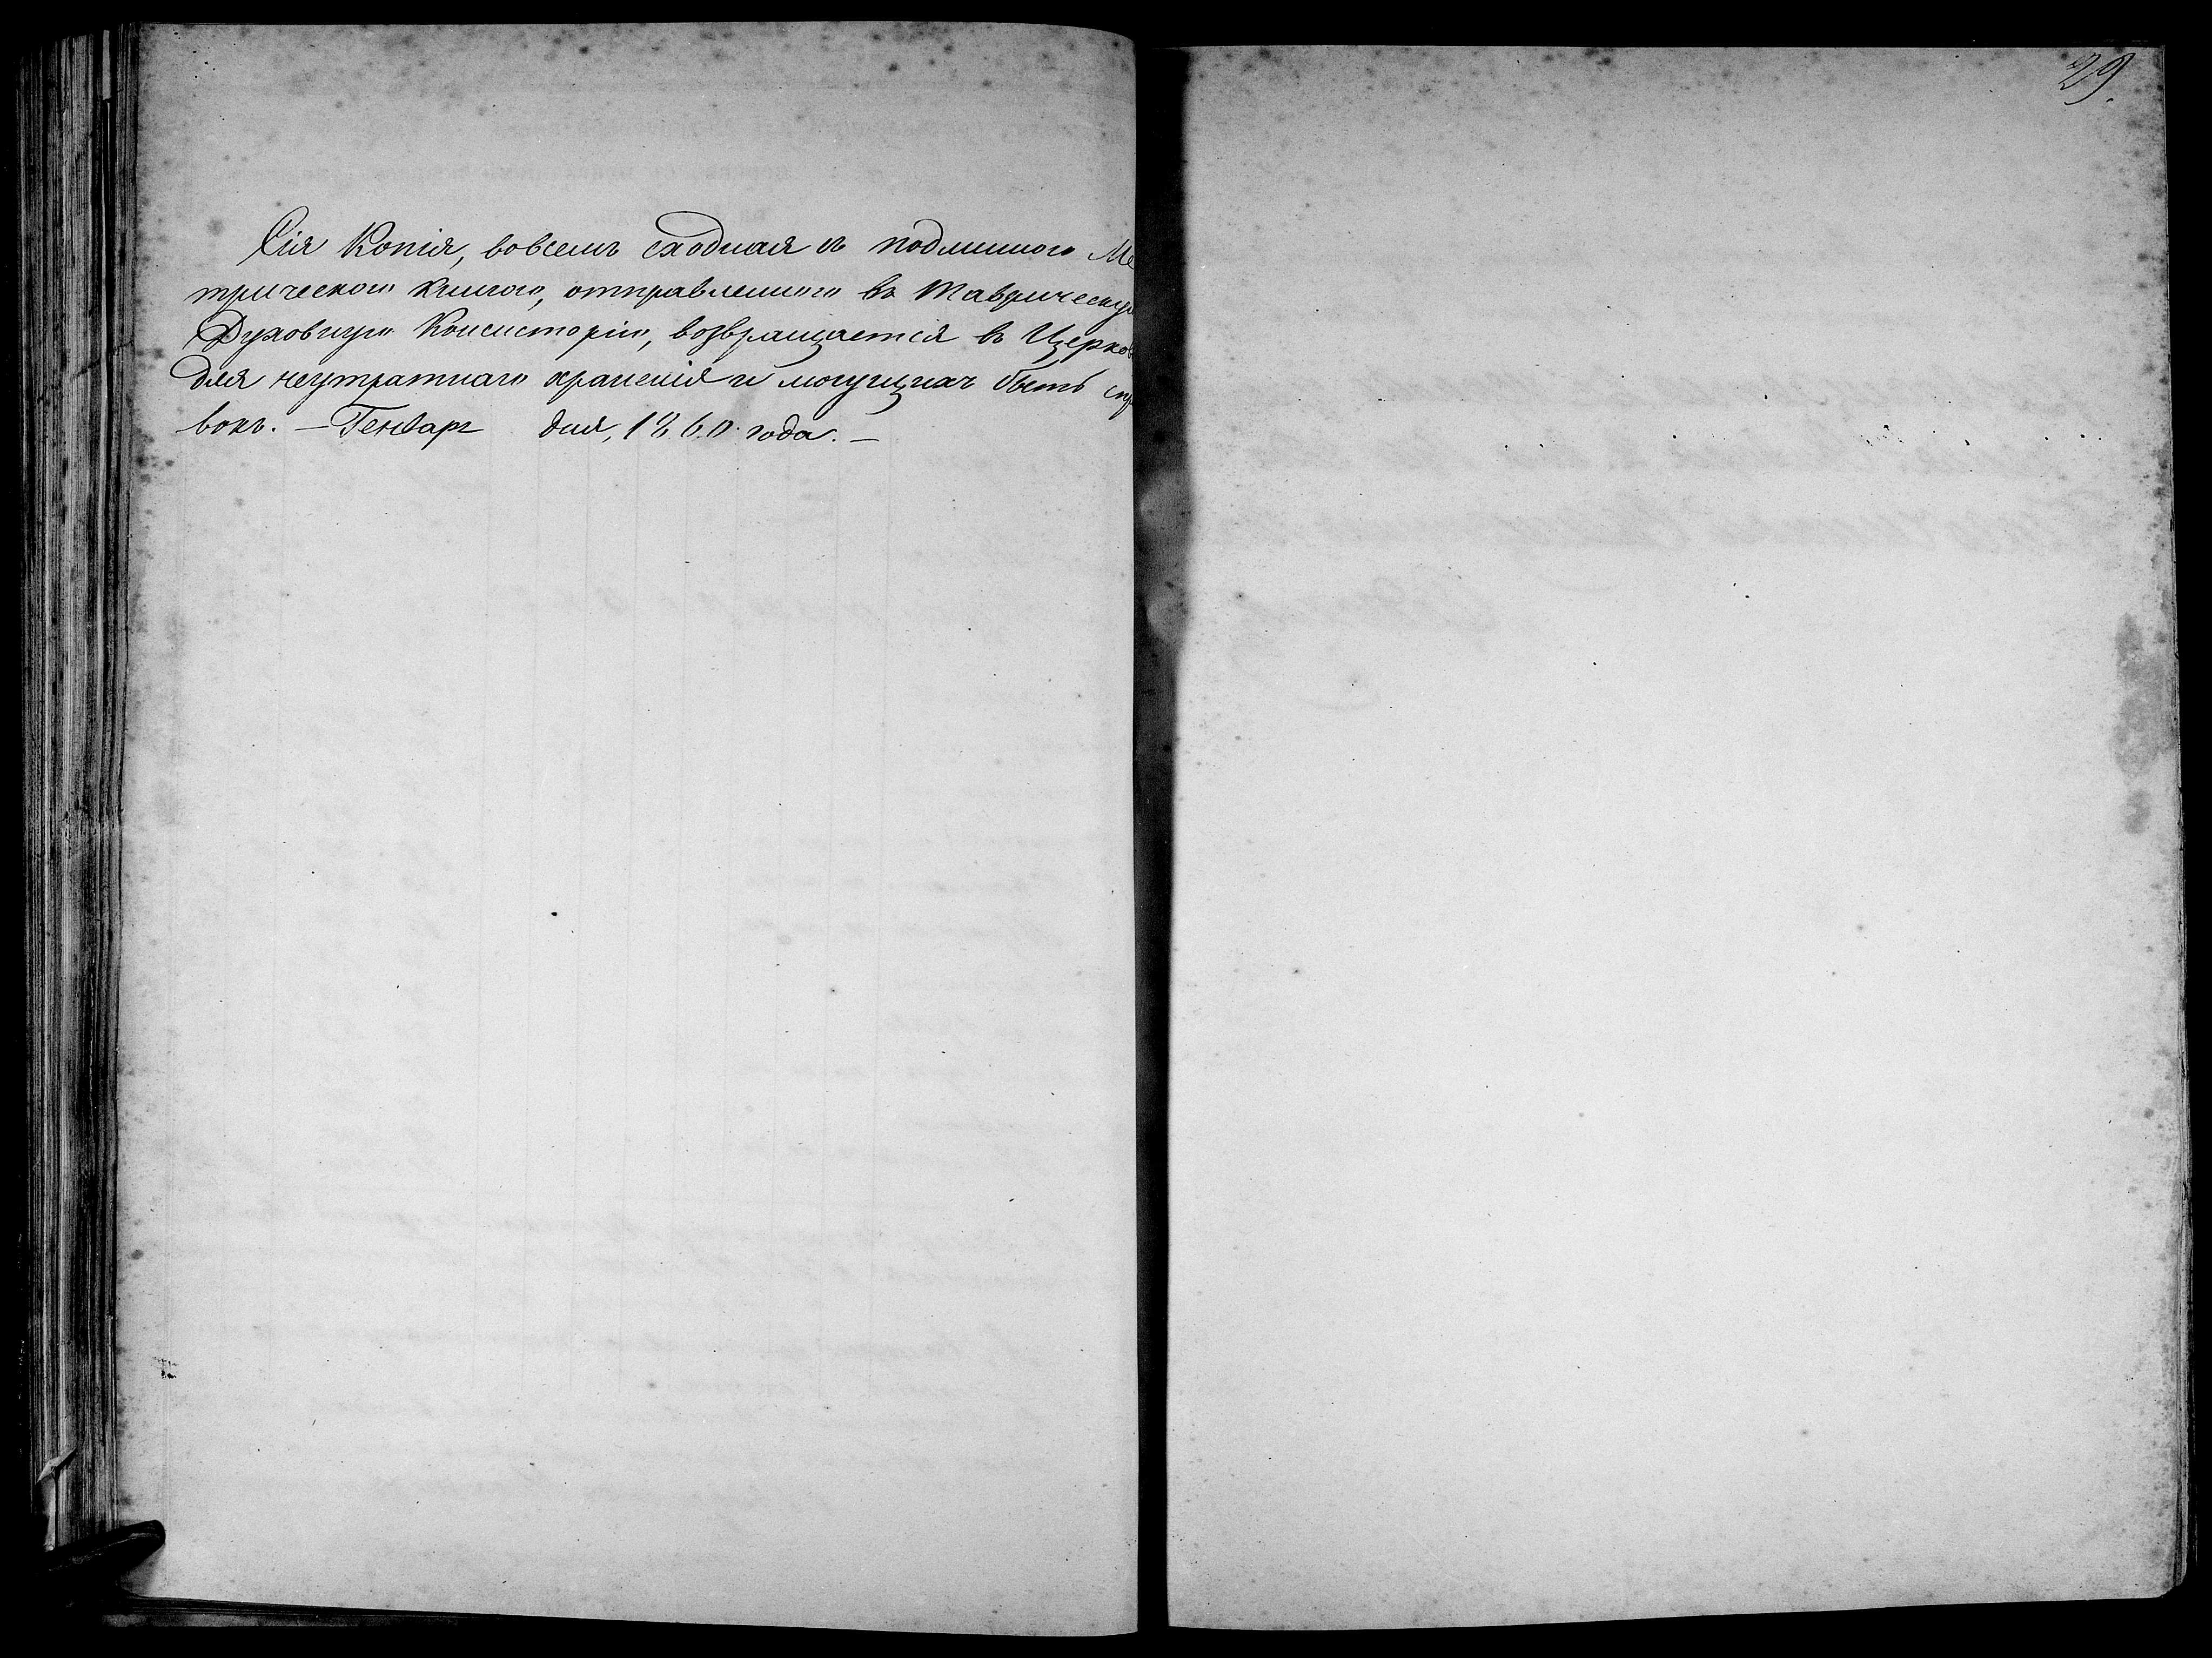 29.
Сія Копія, вовсемъ сходная съ подлинною Ме
трическою Книгою, отправленною въ Таврическую
Духовную Консисторію, возвращается въ Церковь
для неутратнаго храненія и могущихъ быть спра
вокъ. — Генваря дня, 1860 года. —